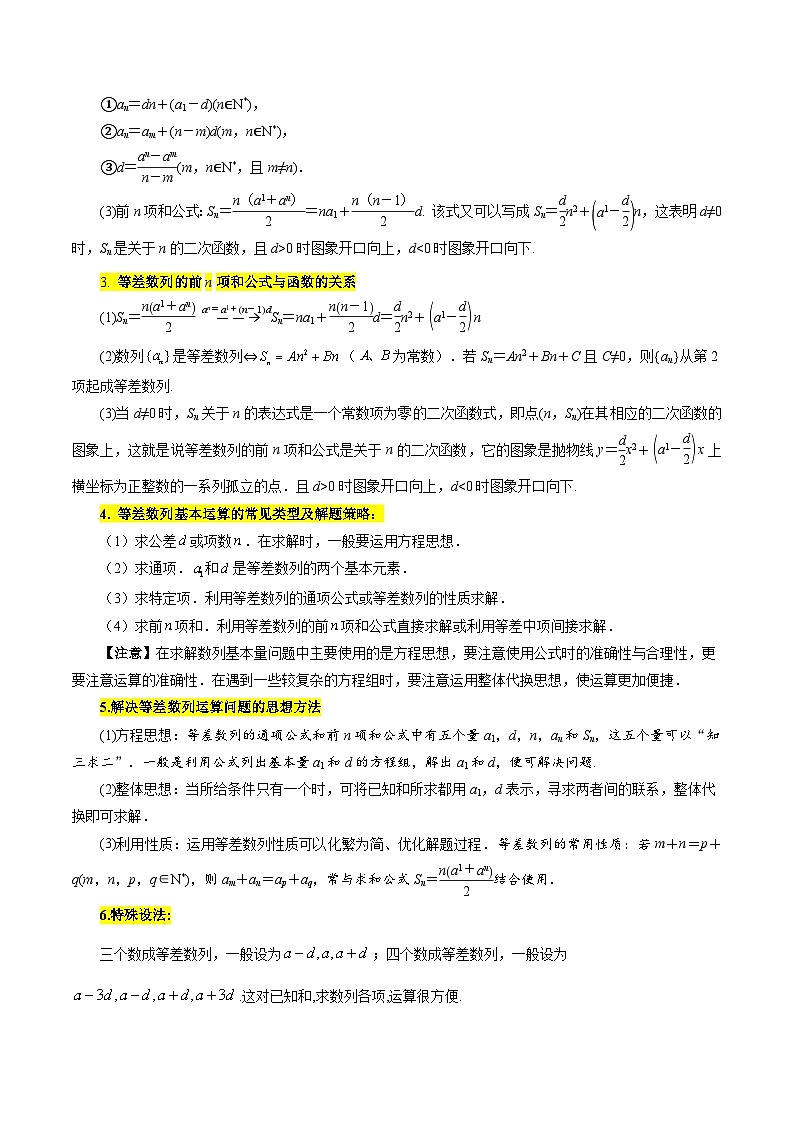 ①aₙ=dn+(a₁-d)(n∈N*),
②aₙ=aₘ+(n-m)d(m,n∈N*),
③d=(aⁿ-aᵐ)/(n-m)(m,n∈N*,且m≠n).
(3)前n项和公式:Sₙ=n(a¹+aⁿ)/2=na₁+n(n-1)/2 d. 该式又可以写成Sₙ=d/2 n²+(a¹-d/2)n,这表明d≠0
时,Sₙ是关于n的二次函数,且d>0时图象开口向上,d<0时图象开口向下.
3. 等差数列的前n项和公式与函数的关系
(1)Sₙ=n(a¹+aⁿ)/2 aⁿ=a¹+(n-1)d——→Sₙ=na₁+n(n-1)/2 d=d/2 n²+(a¹-d/2)n
(2)数列{aₙ}是等差数列⇔Sₙ=An²+Bn(A、B为常数).若Sₙ=An²+Bn+C且C≠0,则{aₙ}从第2
项起成等差数列.
(3)当d≠0时,Sₙ关于n的表达式是一个常数项为零的二次函数式,即点(n,Sₙ)在其相应的二次函数的
图象上,这就是说等差数列的前n项和公式是关于n的二次函数,它的图象是抛物线y=d/2 x²+(a¹-d/2)x上
横坐标为正整数的一系列孤立的点.且d>0时图象开口向上,d<0时图象开口向下.
4. 等差数列基本运算的常见类型及解题策略:
(1)求公差d或项数n.在求解时,一般要运用方程思想.
(2)求通项.a₁和d是等差数列的两个基本元素.
(3)求特定项.利用等差数列的通项公式或等差数列的性质求解.
(4)求前n项和.利用等差数列的前n项和公式直接求解或利用等差中项间接求解.
【注意】在求解数列基本量问题中主要使用的是方程思想,要注意使用公式时的准确性与合理性,更
要注意运算的准确性.在遇到一些较复杂的方程组时,要注意运用整体代换思想,使运算更加便捷.
5.解决等差数列运算问题的思想方法
(1)方程思想:等差数列的通项公式和前n项和公式中有五个量a₁,d,n,aₙ和Sₙ,这五个量可以“知
三求二”.一般是利用公式列出基本量a₁和d的方程组,解出a₁和d,便可解决问题.
(2)整体思想:当所给条件只有一个时,可将已知和所求都用a₁,d表示,寻求两者间的联系,整体代
换即可求解.
(3)利用性质:运用等差数列性质可以化繁为简、优化解题过程.等差数列的常用性质:若m+n=p+
q(m,n,p,q∈N*),则aₘ+aₙ=aₚ+a_q,常与求和公式Sₙ=n(a¹+aⁿ)/2结合使用.
6.特殊设法:
三个数成等差数列,一般设为a-d,a,a+d;四个数成等差数列,一般设为
a-3d,a-d,a+d,a+3d.这对已知和,求数列各项,运算很方便.